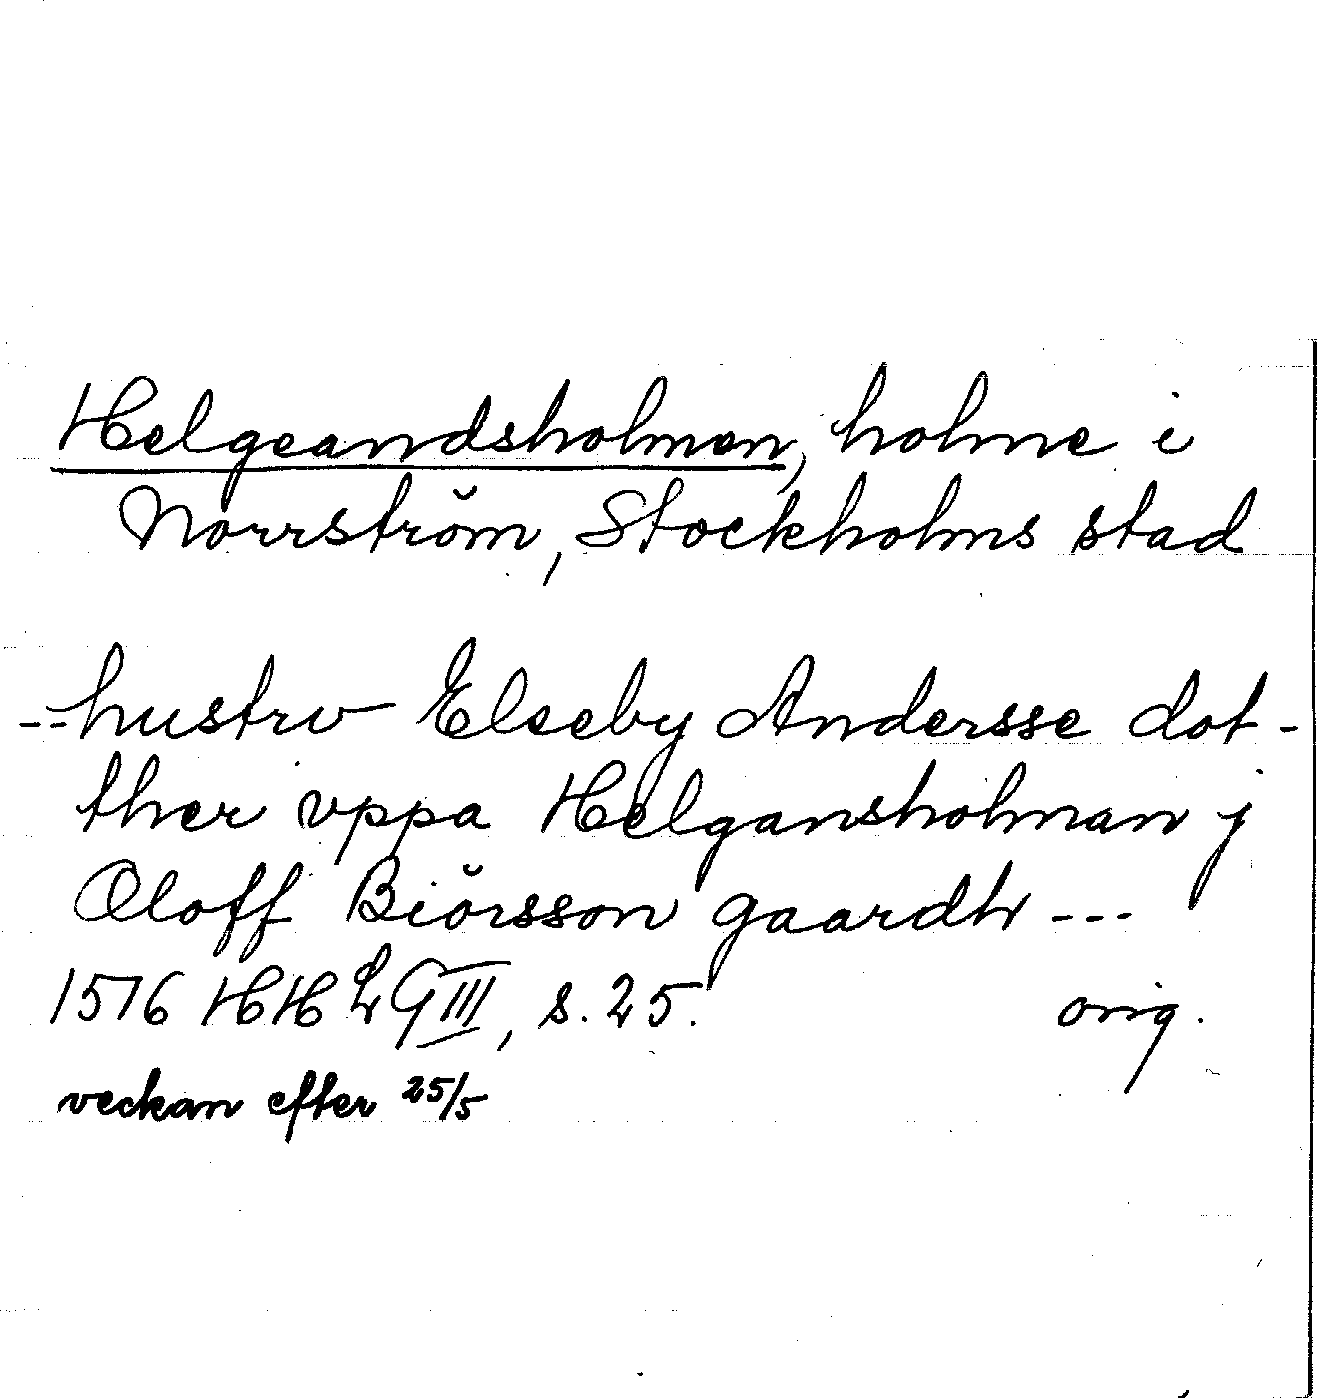 Helgeandsholmen, holme i
Norrström, Stockholms stad
--hustrv Elseby Andersse dot-
ther vppa Helgansholman j
Oloff Biörsson gaardh ---
1576 HHLG III, s. 25. orig.
veckan efter 25/5